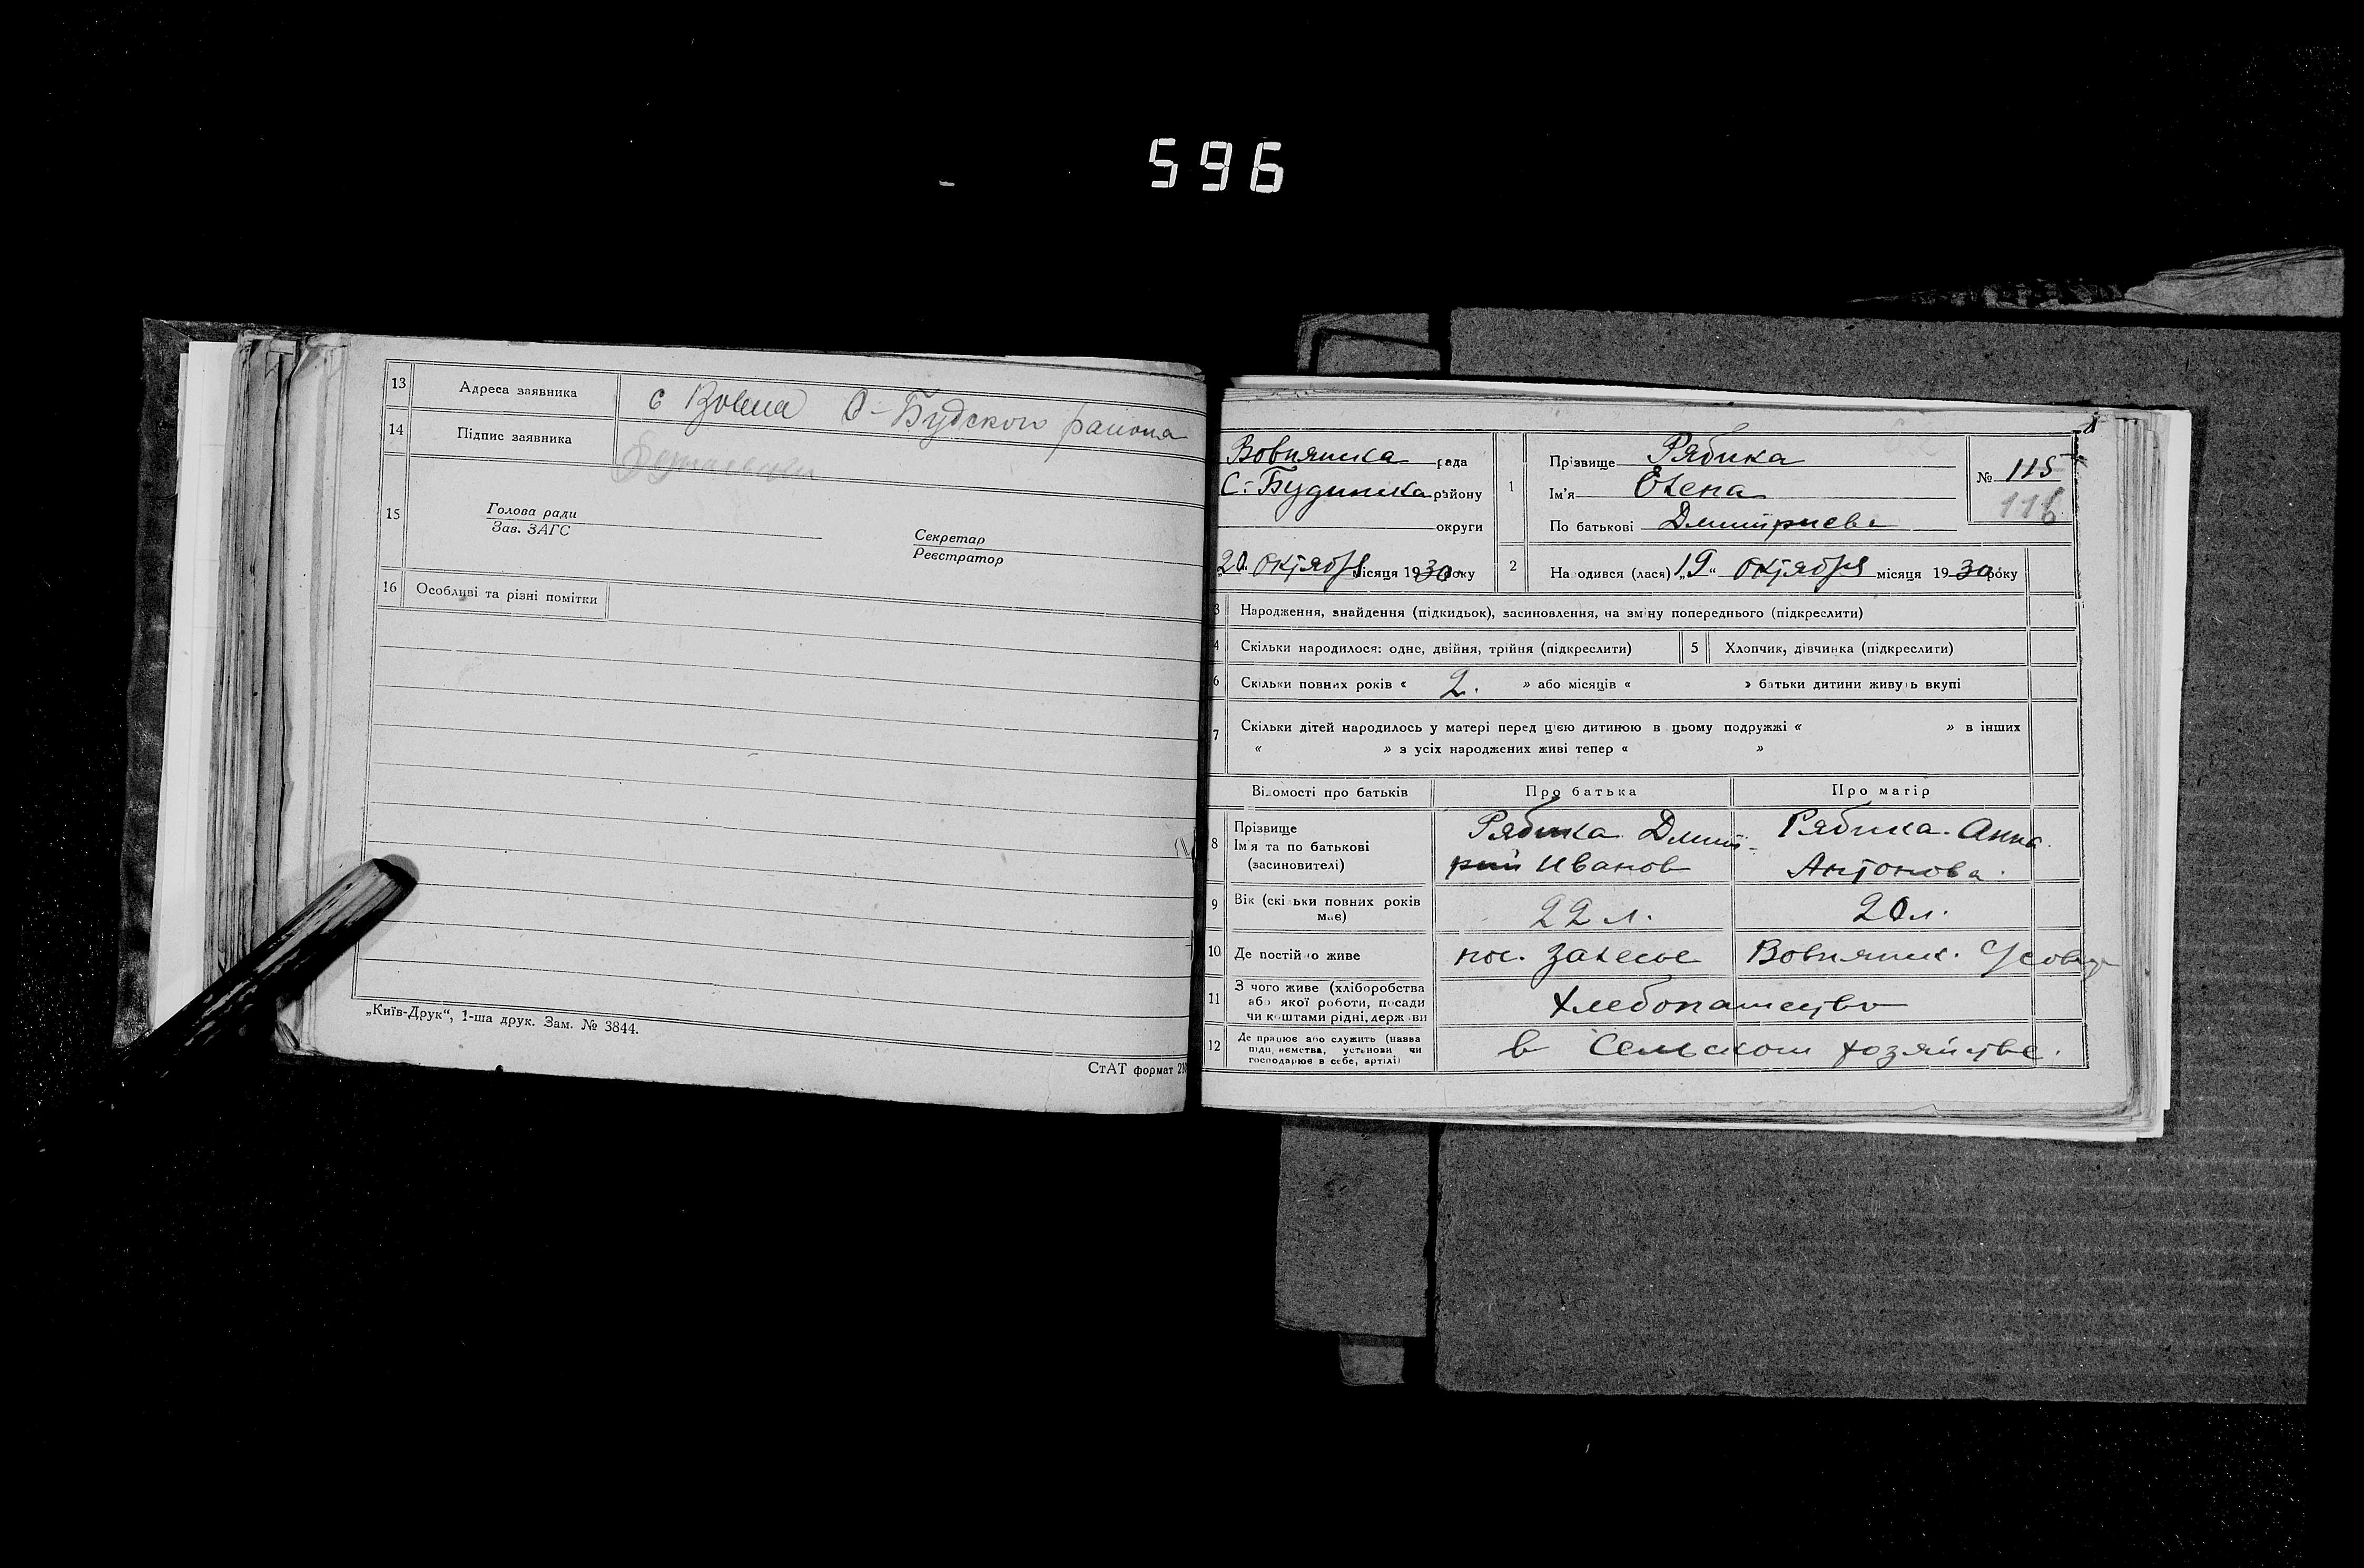 596
13 Адреса заявника с Вовна С-Будского района
14 Підпис заявника
15 Голова ради
Зав. ЗАГС
Секретар
Реєстратор
16 Особливі та різні помітки
„Київ-Друк“, 1-ша друк. Зам. № 3844.
СтАТ формат
Вовнянска рада
С.-Будинска району
округи
20 Октября місяця 1930 року
1 Прізвище Рябика
Ім'я Елена
По батькові Дмитриева
№ 115
116
2 На одився (лася) „19“ Октября місяця 1930 року
3 Народження, знайдення (підкидьок), засиновлення, на зміну попереднього (підкреслити)
4 Скільки народилося: одне, двійня, трійня (підкреслити)
5 Хлопчик, дівчинка (підкреслити)
6 Скільки повних років « 2. » або місяців « » батьки дитини живуть вкупі
7 Скільки дітей народилось у матері перед цією дитиною в цьому подружжі « » в інших
« » з усіх народжених живі тепер « »
Відомості про батьків Про батька Про матір
8 Прізвище
Ім'я та по батькові
(засиновителі)
Рябика Дмит-
рий Иванов
Рябика Анна
Антонова.
9 Вік (скільки повних років
має)
22 л. 20 л.
10 Де постійно живе пос. Залесье Вовнянск.
11 З чого живе (хліборобства
або якої роботи, посади
чи коштами рідні, держави
Хлебопашество
12 Де працює або служить (назва
підприємства, установи чи
господарює в себе, артілі)
в Сельском хозяйстве.